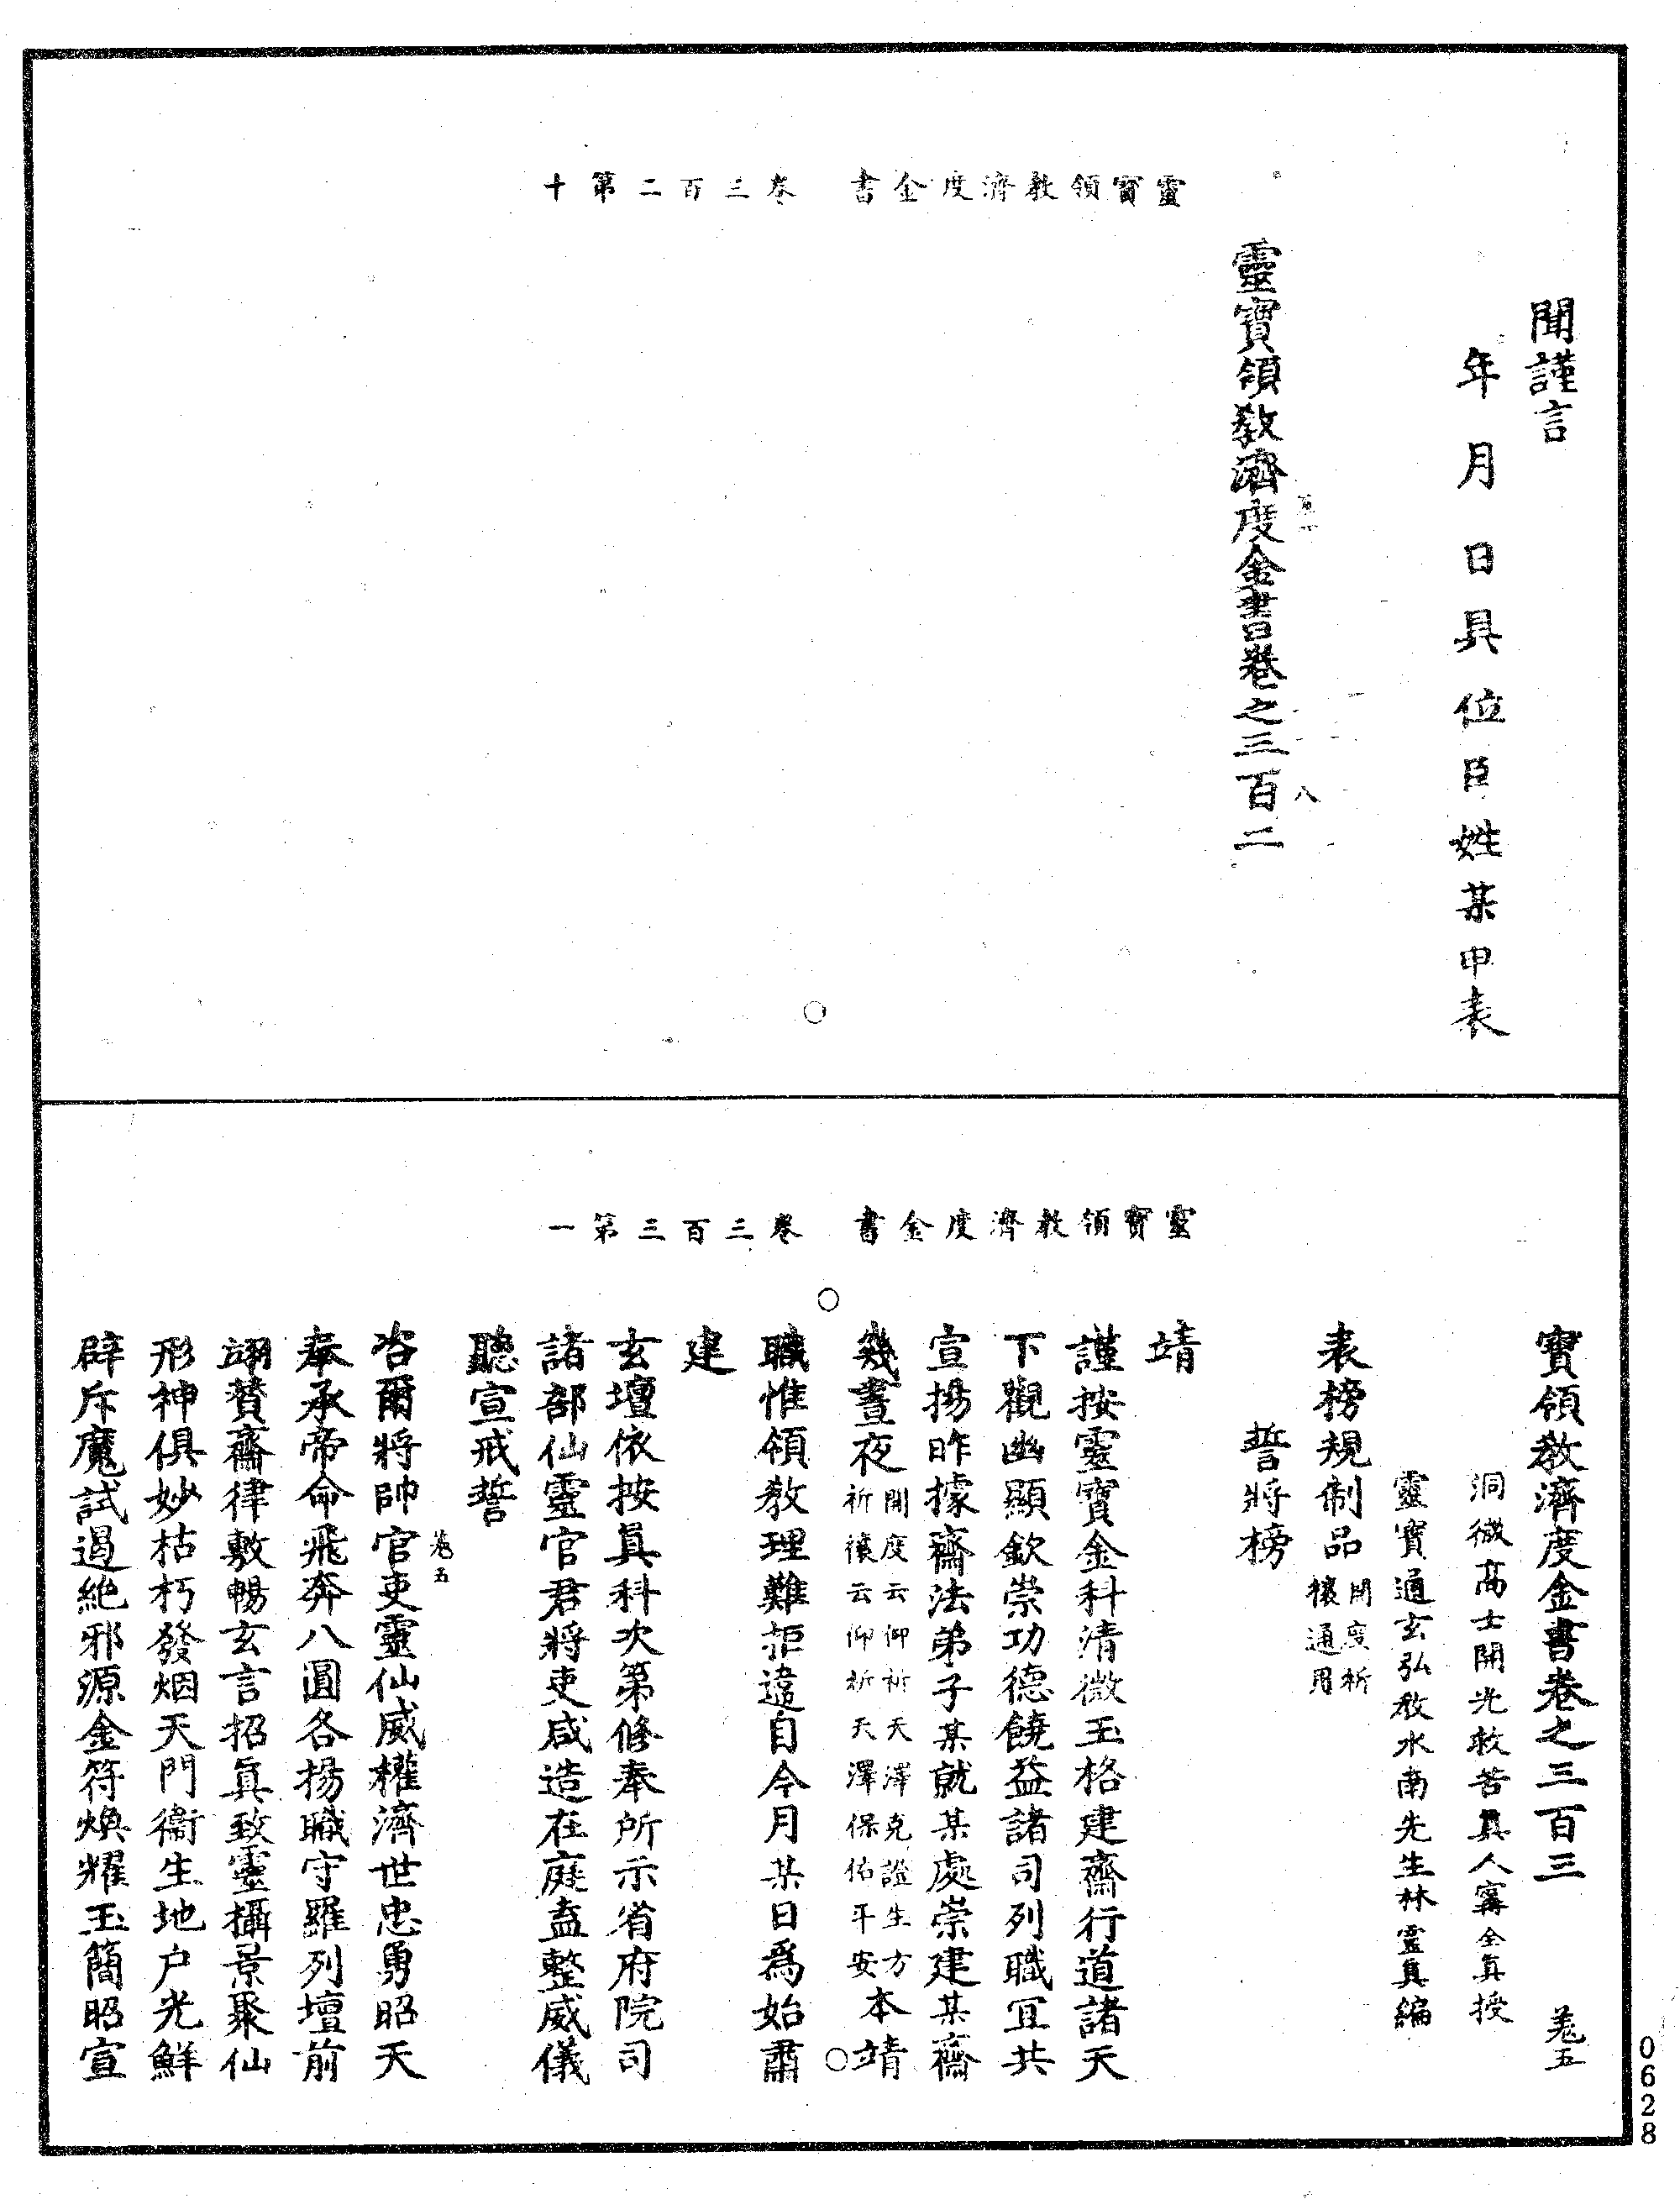 靈寶領教濟度金書　卷三百二第十
聞謹言
年月日具位臣姓某申表
靈寶領教濟度金書卷之三百二
八
靈寶領教濟度金書　卷三百三第一
寶領教濟度金書卷之三百三　羗五
洞微高士開光救苦真人寗全真授
靈寶通玄弘教水南先生林靈真編
表榜規制品開度祈禳通用
誓將榜
靖
謹按靈寶金科清微玉格建齋行道諸天
下觀幽顯欽崇功德饒益諸司列職宜共
宣揚昨據齋法弟子某就某處崇建某齋
幾晝夜開度云仰祈天澤克證生方祈禳云仰祈天澤保佑平安本靖
職惟領教理難拒違自今月某日爲始肅
建
玄壇依按真科次第修奉所示省府院司
諸部仙靈官君將吏咸造在庭盍整威儀
聽宣戒誓
羗五
咨爾將帥官吏靈仙威權濟世忠勇昭天
奉承帝命飛奔八圓各揚職守羅列壇前
翊贊齋律敷暢玄言招真致靈攝景聚仙
形神俱妙枯朽發烟天門衞生地户光鮮
辟斥魔試遏絶邪源金符煥耀玉簡昭宣
0628